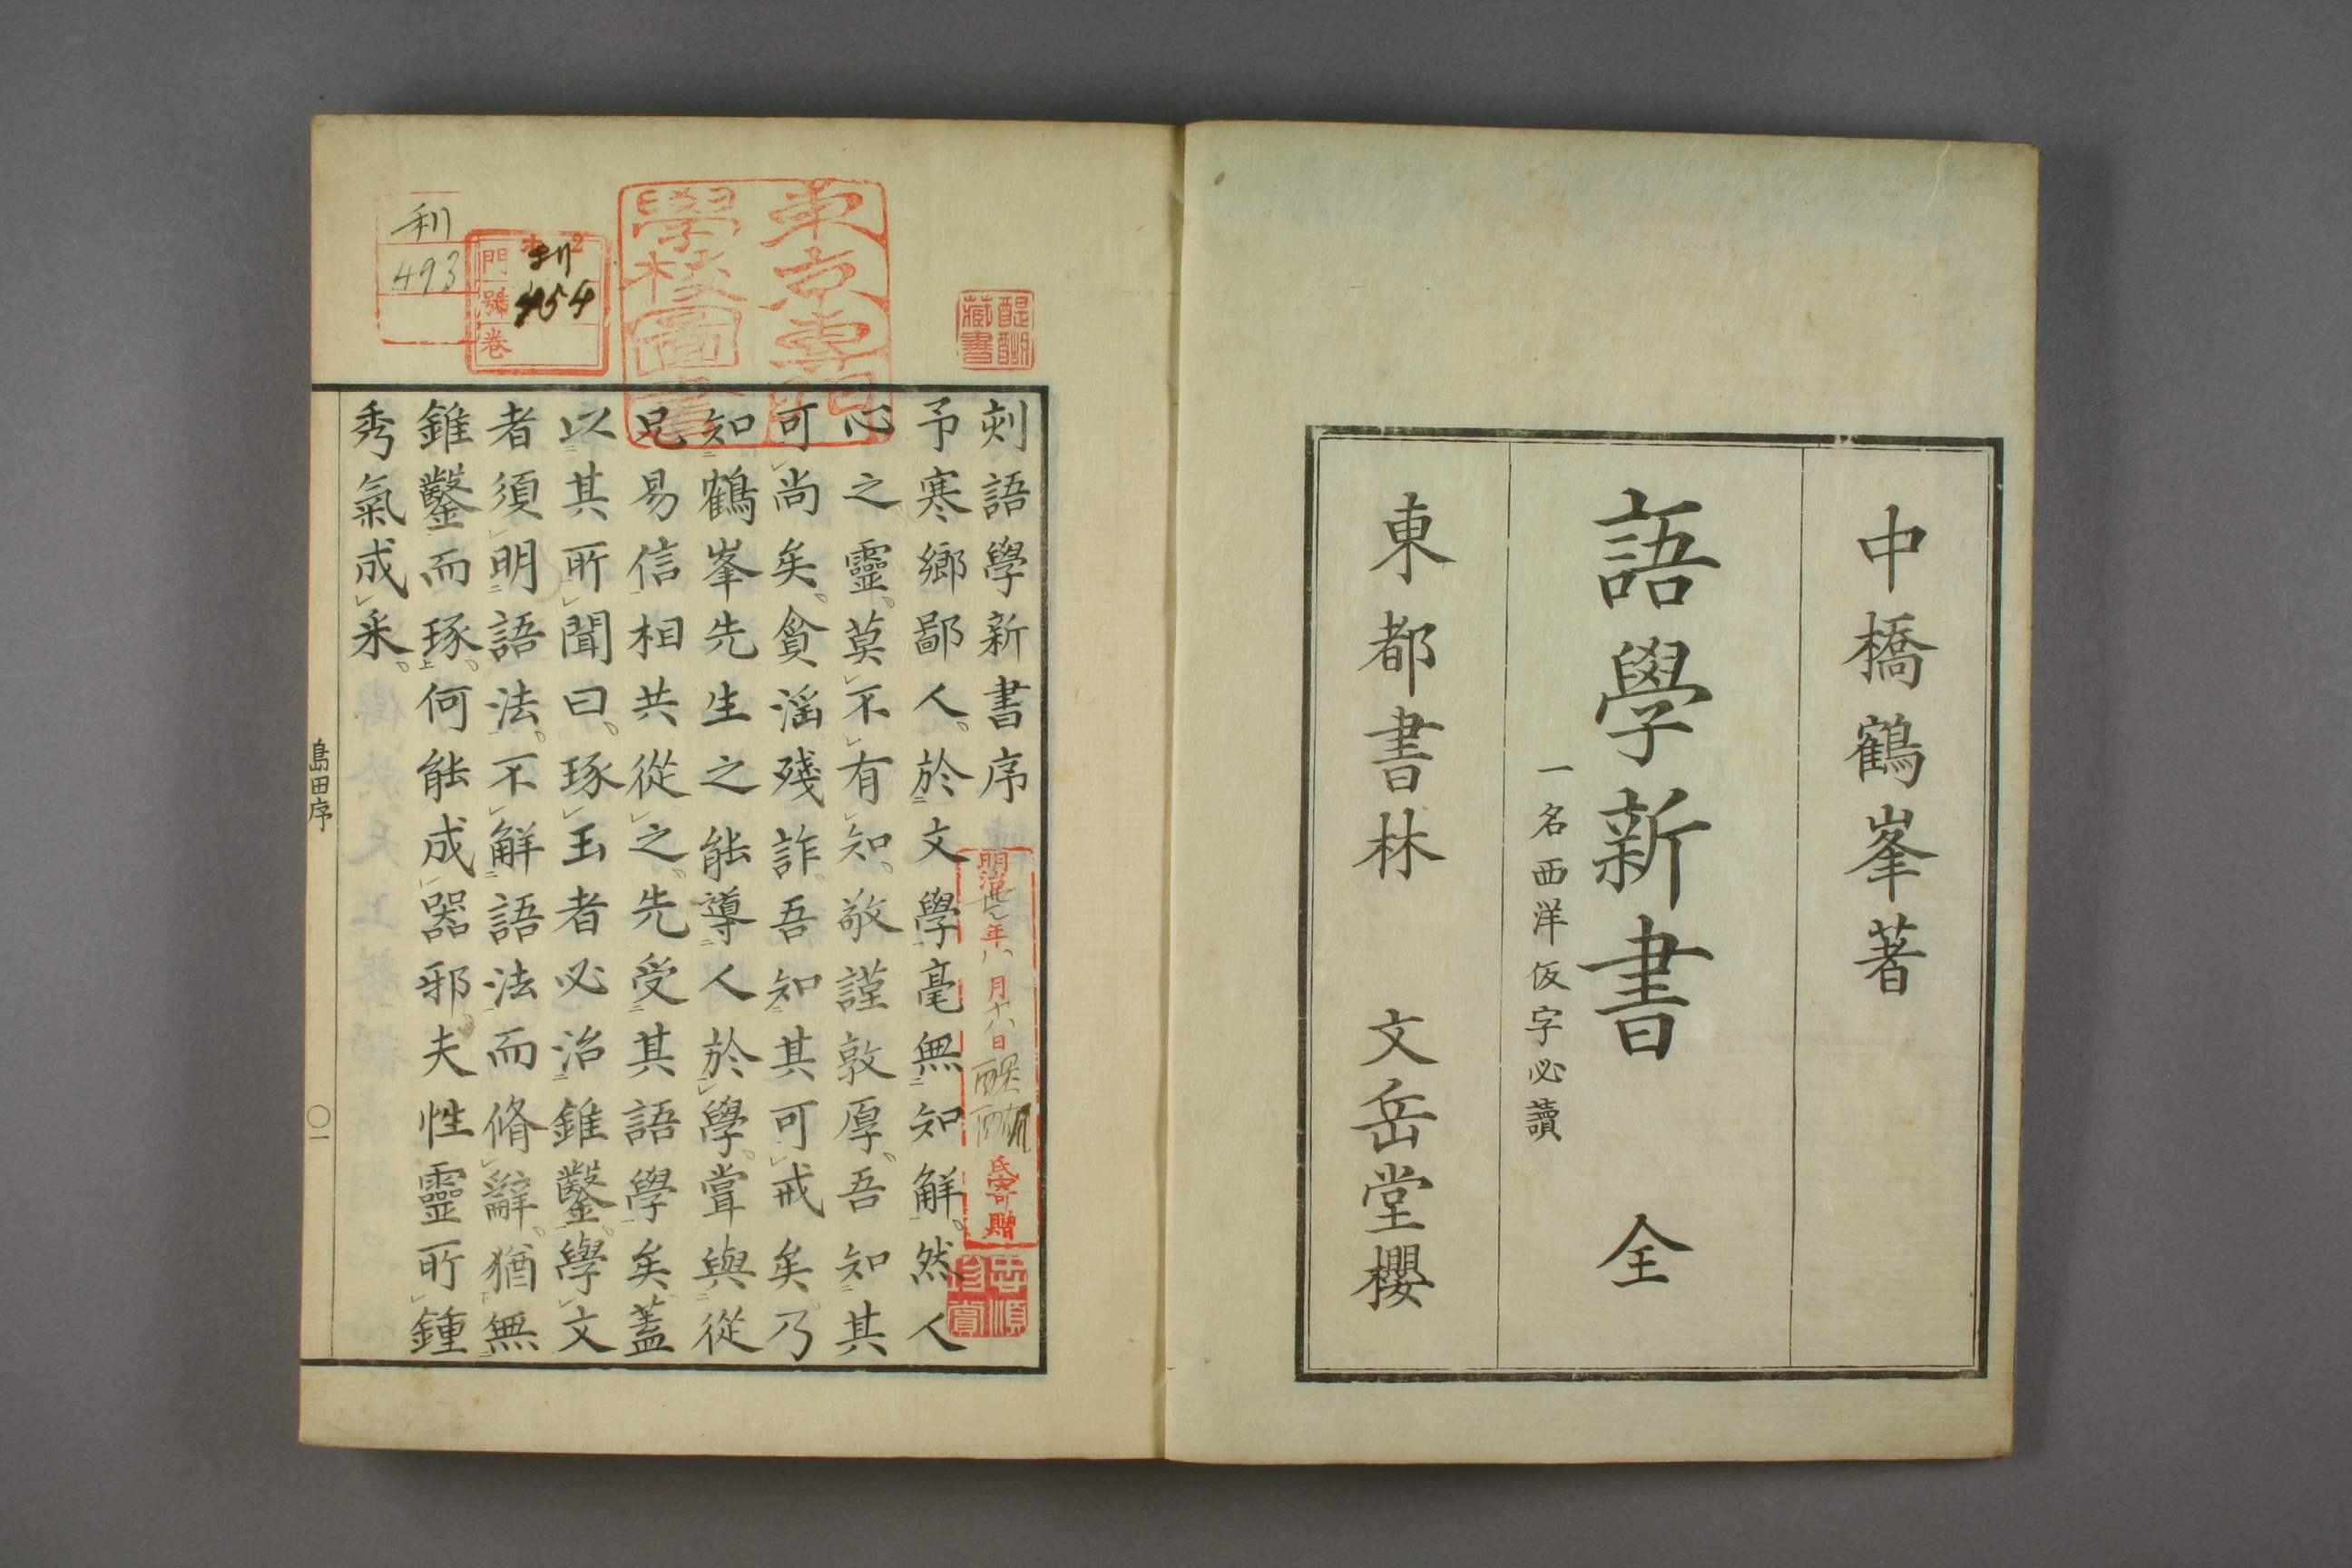 中橋鶴峯著
語學新書 全
一名西洋仮字必讀
東都書林 文岳堂櫻
東京專門
學校圖書
醍醐
藏書
門 利
號 454
卷
利
493
刻語學新書序
予寒鄉鄙人。於文學毫無知解。然人
心之靈。莫不有知。敬謹敦厚。吾知其
可尚矣。貪淫殘詐。吾知其可戒矣。乃
知鶴峯先生之能導人於學。嘗與從
兄易信相共從之。先受其語學矣。蓋
以其所聞曰。琢玉者必治錐鑿。學文
者須明語法。不解語法而脩辭。猶無
錐鑿而琢。何能成器邪。夫性靈所鍾
秀氣成采。
明治 年八月十八日
氏寄贈
島田序
〇一